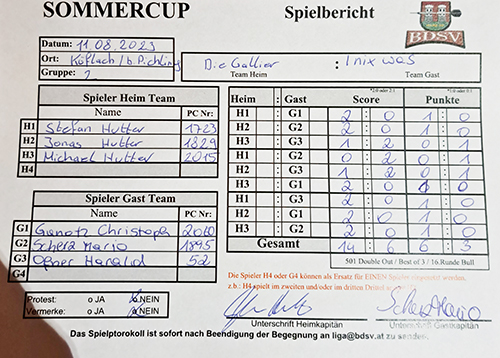 SOMMERCUP Spielbericht
BDSV
Datum: 11.08.2023
Ort: Köflach / b. Pichling
Gruppe: 2
Die Gallier : I nix was
Team Heim Team Gast
Spieler Heim Team
Name PC Nr:
H1 Stefan Hutter 1723
H2 Jonas Hutter 1829
H3 Michael Hutter 2015
H4
Spieler Gast Team
Name PC Nr:
G1 Christoph 2060
G2 Scherz Mario 1895
G3 Harald 52
G4
Heim : Gast Score Punkte
H1 : G1 2 : 0 1 : 0
H2 : G2 2 : 0 1 : 0
H3 : G3 1 : 2 0 : 1
H1 : G2 0 : 2 0 : 1
H2 : G3 1 : 2 0 : 1
H3 : G1 2 : 0 1 : 0
H1 : G3 2 : 0 1 : 0
H2 : G1 2 : 0 1 : 0
H3 : G2 2 : 0 1 : 0
Gesamt 14 : 6 6 : 3
501 Double Out / Best of 3 / 16 Runde Bull
Die Spieler H4 oder G4 können als Ersatz für EINEN Spieler eingesetzt werden,
z.b.: H4 spielt im zweiten und/oder im dritten
Protest: o JA o NEIN
Vermerke: o JA o NEIN
Scherz Mario
Unterschrift Heimkapitän Unterschrift Gastkapitän
Das Spielptorokoll ist sofort nach Beendigung der Begegnung an liga@bdsv.at zu senden.